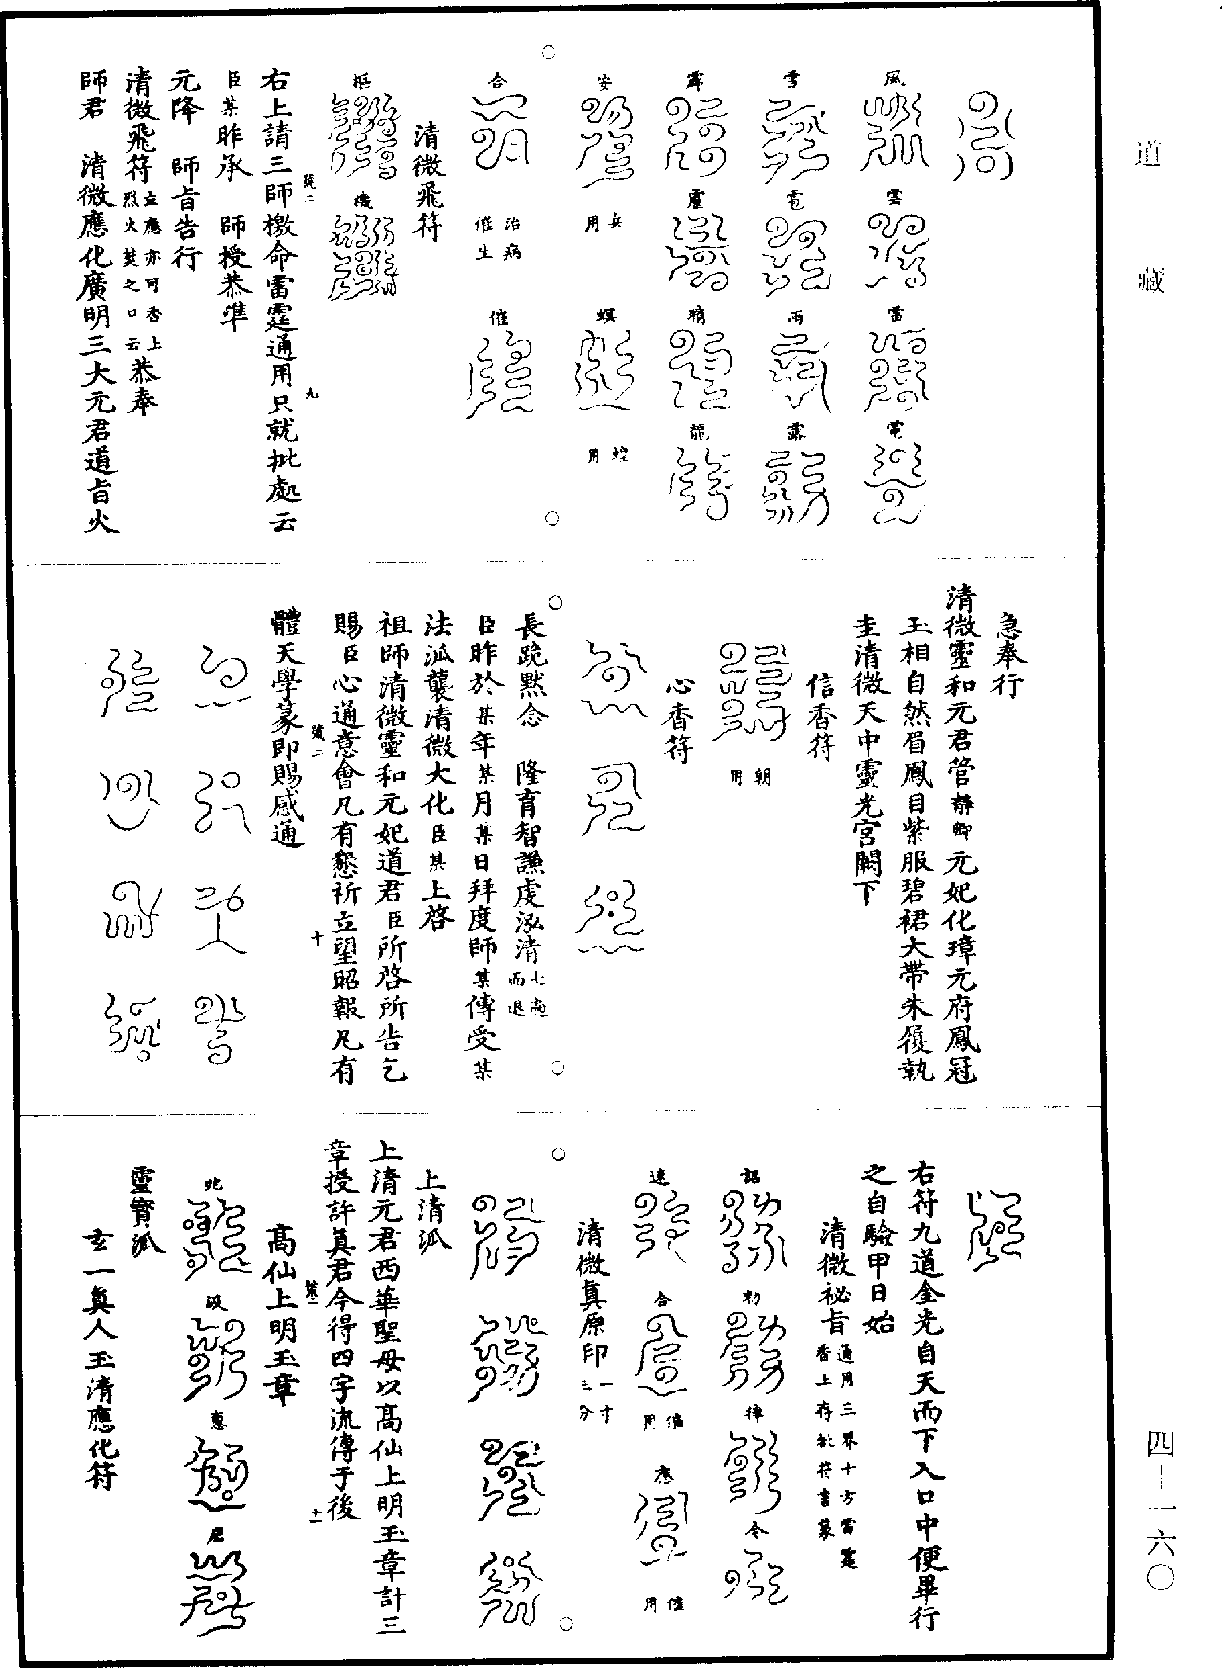 道藏
四-一六〇
風
雲
雷
電
雪
雹
雨
露
霹
靂
晴
龍
安
兵
用
蝗
用
合
治病
催生
催
清微飛符
樞
機
右上請三師檄命雷霆通用只就批處云
臣某昨承　師授恭準
元降　師旨告行
清微飛符立應亦可香上烈火焚之口云恭奉
師君　清微應化廣明三大元君道旨火
急奉行
清微靈和元君管靜卿元妃化璋元府鳳冠
玉相自然眉鳳目紫服碧裙大帶朱履執
圭清微天中靈光宮闕下
信香符
朝
用
心香符
長跪黙念　隆育智謙虔泓清七遍而退
臣昨於某年某月某日拜度師某傳受某
法派襲清微大化臣某上啓
祖師清微靈和元妃道君臣所啓所告乞
賜臣心通意會凡有懇祈立望昭報凡有
體天學篆即賜感通
右符九道金光自天而下入口中便畢行
之自驗甲日始
清微祕旨通用三界十方雷霆香上存訖符書篆
詔
勑
律
令
速
合
用
應
催
用
清微真原印一寸三分
上清派
上清元君西華聖母以高仙上明玉章計三
章授許真君今得四字流傳于後
高仙上明玉章
靈寳派
玄一真人玉清應化符